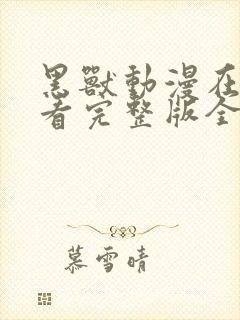 黑獸動漫在
看完整版全
慕雪晴